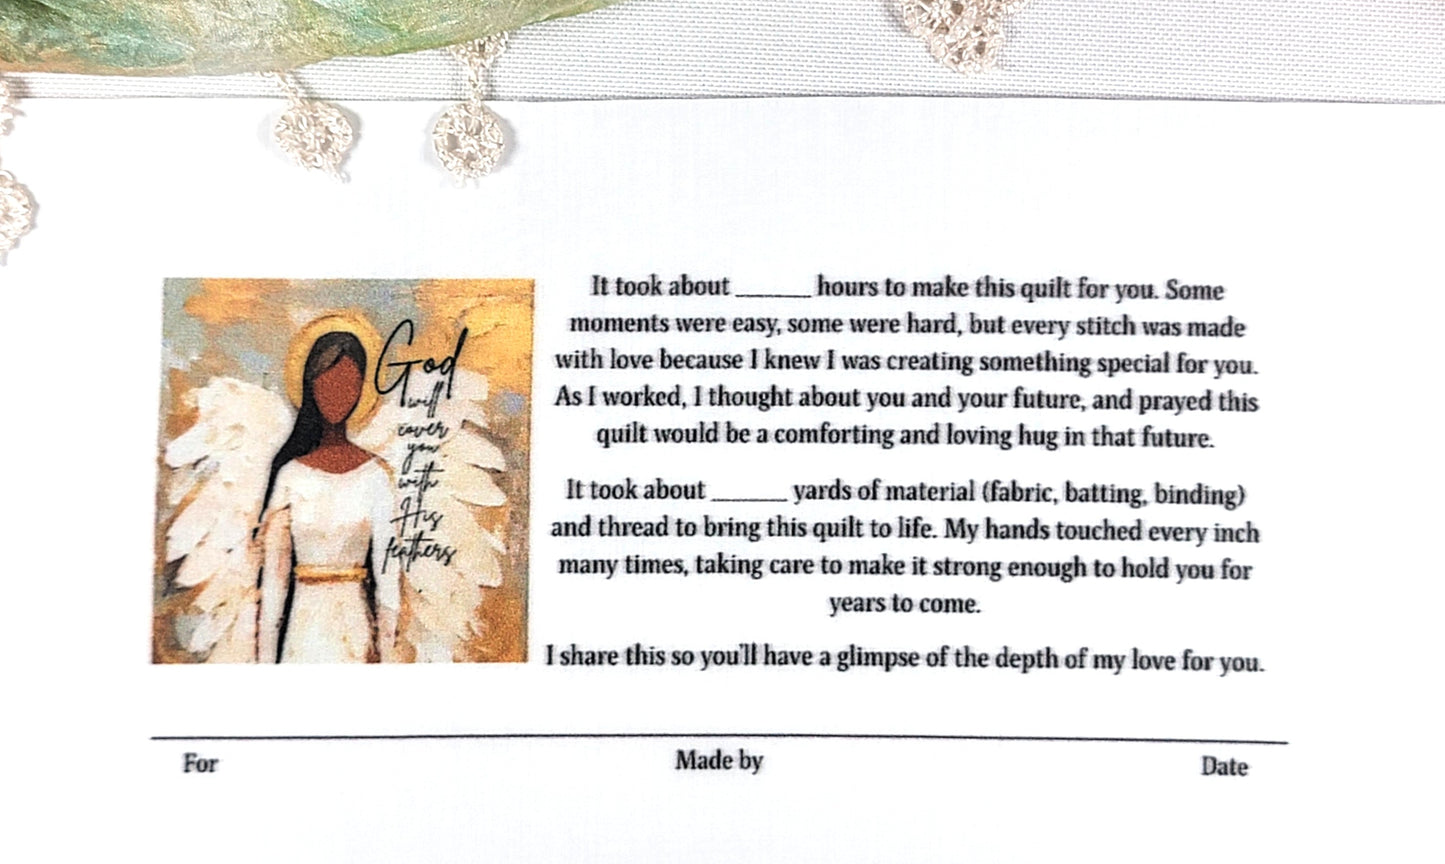 God
will
cover
you
with
His
feathers
It took about ______ hours to make this quilt for you. Some
moments were easy, some were hard, but every stitch was made
with love because I knew I was creating something special for you.
As I worked, I thought about you and your future, and prayed this
quilt would be a comforting and loving hug in that future.
It took about ______ yards of material (fabric, batting, binding)
and thread to bring this quilt to life. My hands touched every inch
many times, taking care to make it strong enough to hold you for
years to come.
I share this so you'll have a glimpse of the depth of my love for you.
For Made by Date